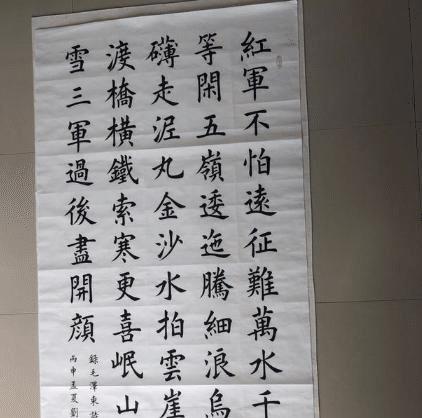 紅軍不怕遠征難萬水千
等閑五嶺逶迤騰細浪烏
礴走泥丸金沙水拍雲崖
渡橋橫鐵索寒更喜岷山
雪三軍過後盡開顔
錄毛澤東詩
丙申孟夏劉